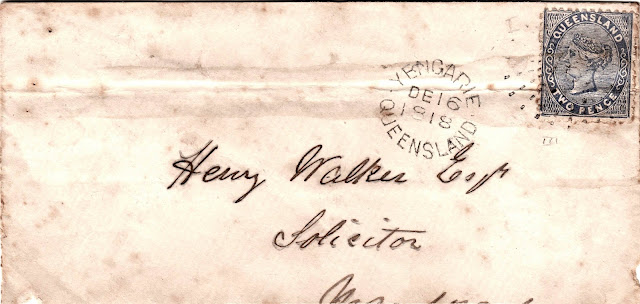 QUEENSLAND
TWO PENCE
YENGARIE
DE 16
1818
QUEENSLAND
Henry Walker Esqr
Solicitor